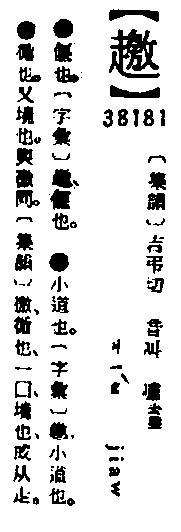 【】
38181
〔集韻〕吉弔切 音叫 嘯去聲
ㄐㄧㄠˋ jiaw
●也。〔字彙〕也。●小道也。〔字彙〕小道也。
●也。又境也。與徼同。〔集韻〕徼、循也、一曰、境也、或从走。